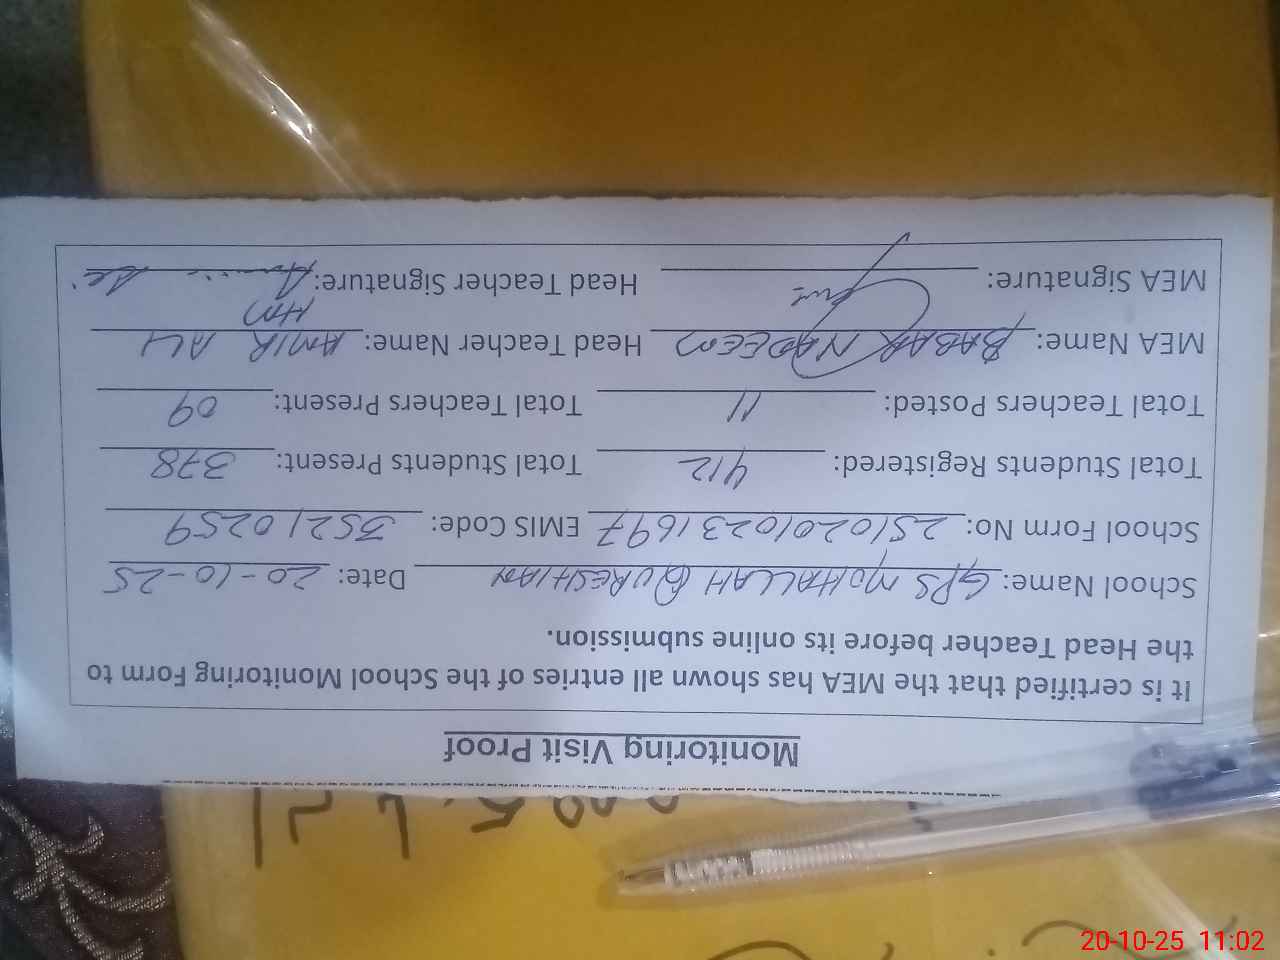 Monitoring Visit Proof
It is certified that the MEA has shown all entries of the School Monitoring Form to
the Head Teacher before its online submission.
School Name: GPS MOHALLAH QURESHIAN Date: 20-10-25
School Form No: 2510201023 1697 EMIS Code: 35210259
Total Students Registered: 412 Total Students Present: 378
Total Teachers Posted: 11 Total Teachers Present: 09
MEA Name: BABAR NADEEM Head Teacher Name: AMIR ALI
HM
MEA Signature: Head Teacher Signature:
20-10-25 11:02